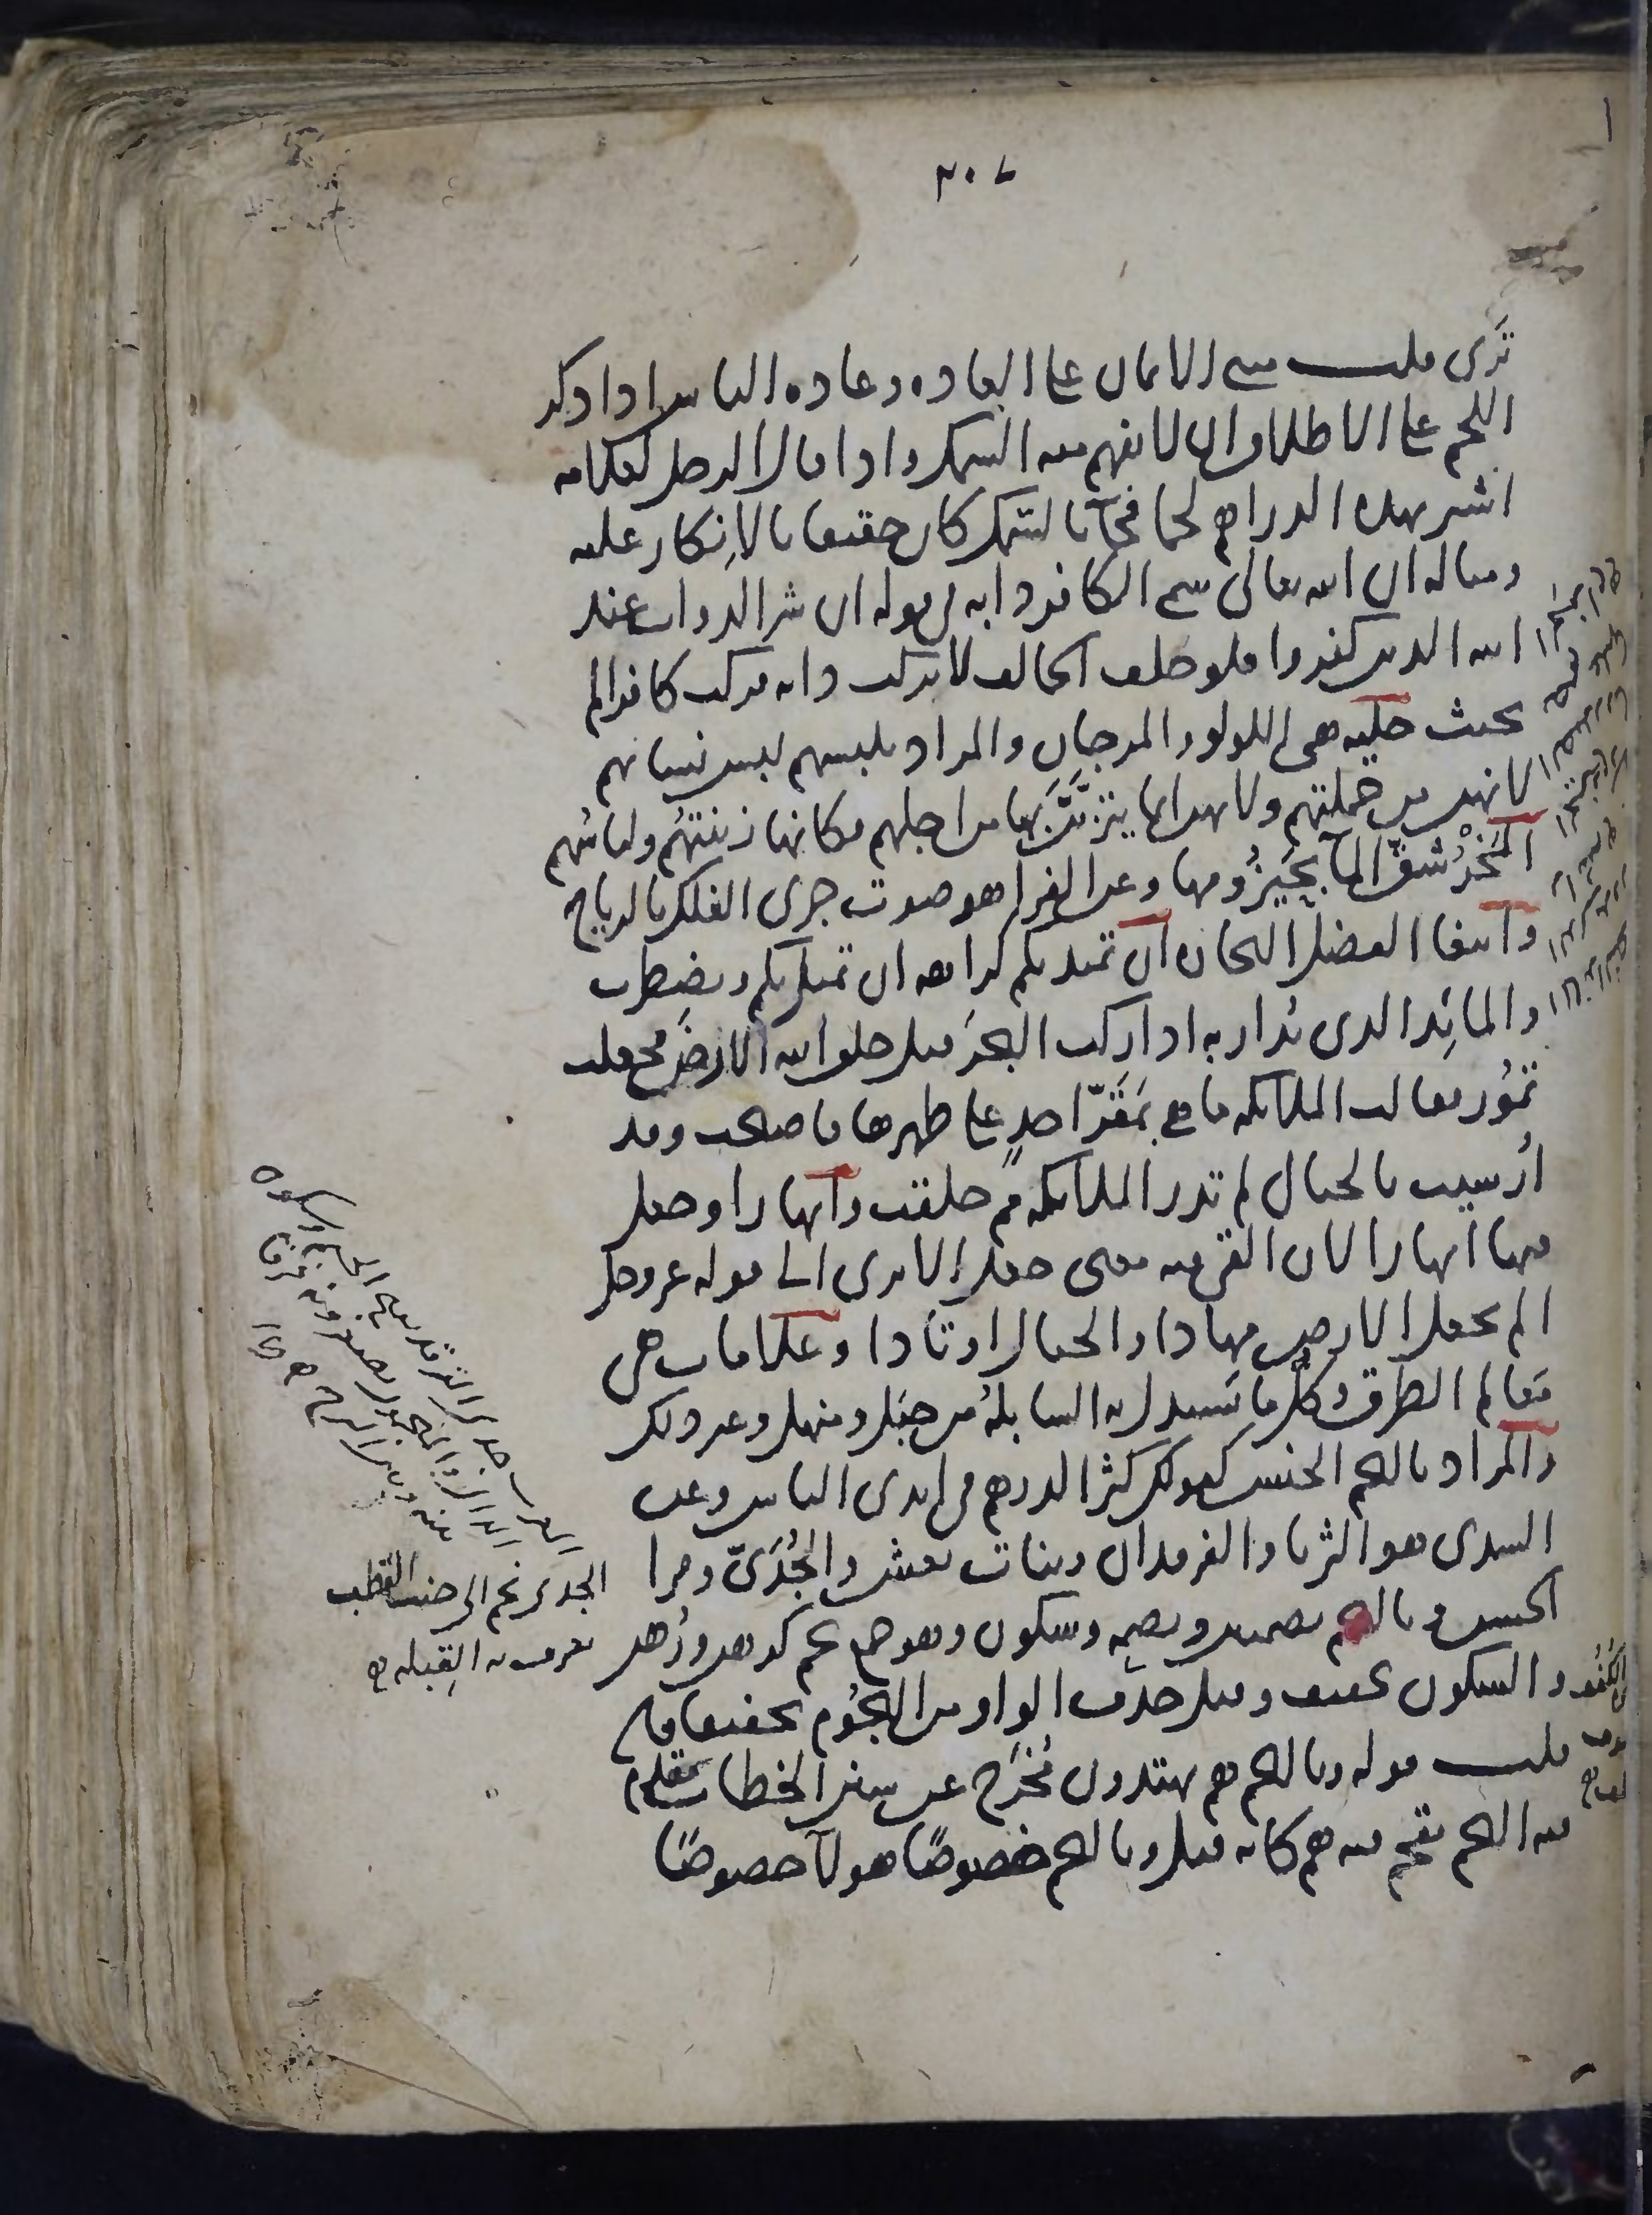 ٢٠٧
تَرَى قلت مبنى الايمان على العاده وعادة الناس اذا ذكر
اللحم على الاطلاق ان لا يفهم منه السمك واذا قال الرجل لغلامه
اشتر بهذه الدراهم لحما فجآ بالسّمك كان حقيقا بالاِنكار عليه
ومثاله ان الله تعالى سمى الكافر دابه في قوله ان شر الدواب عند
الله الذين كفروا فلو حلف الحالف لا يركب دابه فركب كافرا لم
يحنث حليه هي اللولو والمرجان والمراد بلبسهم لبس نسائهم
لانهن من جملتهم ولانهن انما يتزيَّنَّ بها من اجلهم فكانها زينتهُم ولباسُهم
المَخْرُ شقّ المآ بحَيزُومها وعن الفرا هو صوت جرى الفلك بالرياح
وابتغا الفضل التجاره ان تميد بكم كراهه ان تميل بكم وتضطرب
والمائِد الذى يُدار به اذا ركب البحرَ قيل خلق الله الارضَ فجعلت
تمُور فقالت الملائكه ما هي بمَقَرّ احدٍ على ظهرها فاصبحت وقد
اُرسيت بالجبال لم تدر الملائكه ممّ خلقت وانهارا وجعل
فيها انهارا لان القى فيه معنى جعل الا ترى الى قوله عز وجل
الم نجعل الارض مهادا والجبال اوتادا وعلامات هي
مَعالم الطرق وكلّ ما تستدل به السابلةُ من جبَل ومنهل وغير ذلك
والمراد بالنجم الجنس كقولك كثر الدرهم في ايدى الناس وعن
السدى هو الثريا والفرقدان وبنات نعش والجُدَىّ وقرا
الحسن وبالنجم بضمتين وبضمه وسكون وهو جمع نجم كرهن ورُهن
والسكون تخفيف وقيل حذف الواو من النجُوم تخفيفا فان
قلت قوله وبالنجم هم يهتدون مُخرَج عن سنن الخطاب مقدم
فيه النجم مقحم فيه هم كانه قيل وبالنجم خصوصًا هولآ خصوصًا
الجدى نجم الى جنب القطب
تعرف به القِبله